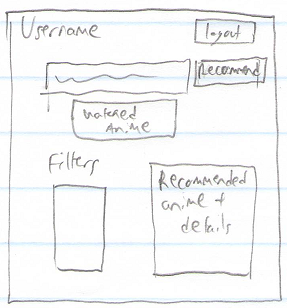 Username
layout
Recommend
watched
Anime
Filters
Recommended
anime +
details